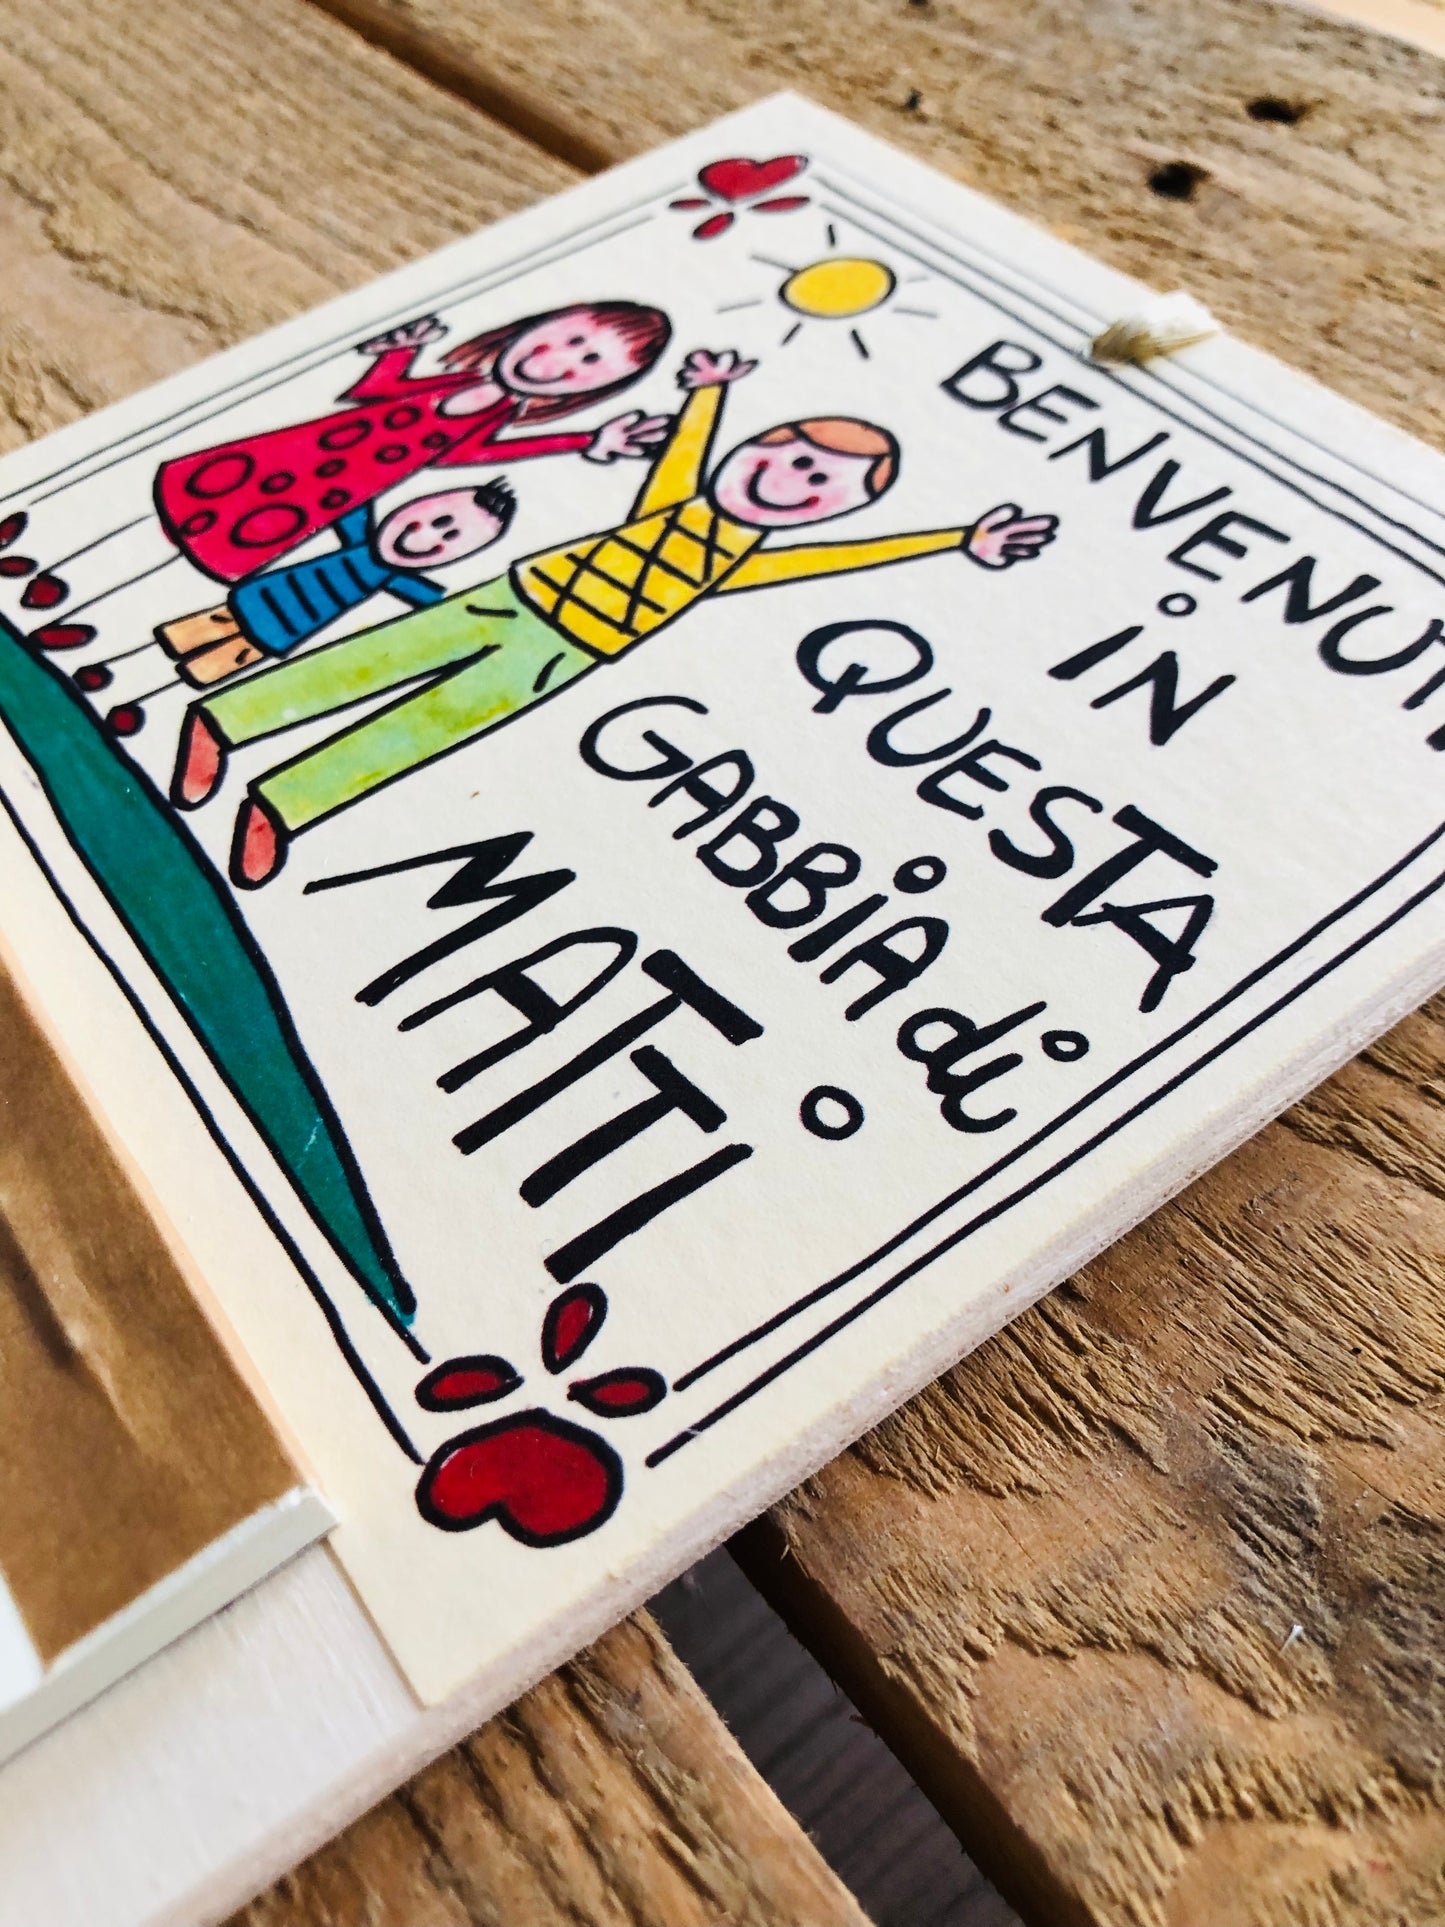 BENVENUTi
iN
QUESTA
GABBiA di
MATTi